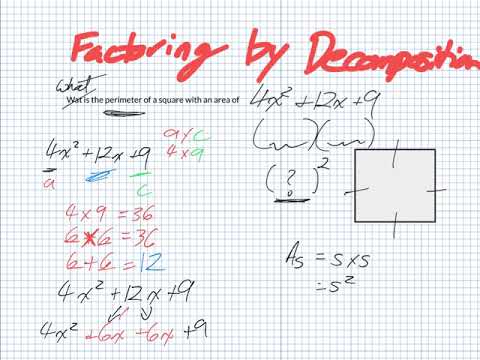 Factoring by Decomposition
What
Wat is the perimeter of a square with an area of 4x² + 12x + 9
( )( )
( ? )²
4x² + 12x + 9
a c
a x c
4 x 9
4 x 9 = 36
6 x 6 = 36
6 + 6 = 12
4x² + 12x + 9
4x² + 6x + 6x + 9
As = s x s
= s²